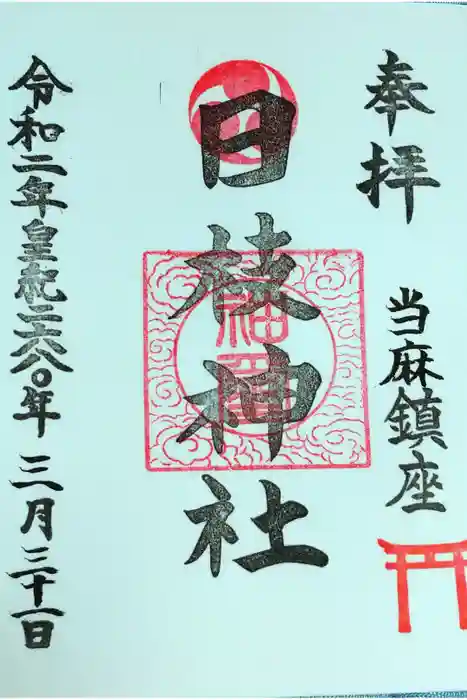 奉拝　当麻鎮座
日枝神社
令和二年皇紀二六八〇年三月三十一日